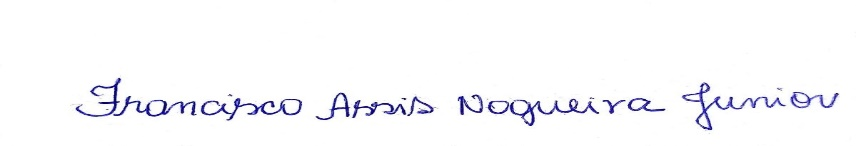 Francisco Assis Nogueira Junior